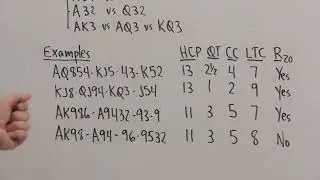 A32 vs Q32
AK3 vs AQ3 vs KQ3
Examples HCP QT CC LTC R20
AQ854-KJ5-43-K52 13 2½ 4 7 Yes
KJ8-QJ94-KQ3-J54 13 1 2 9 Yes
AK986-A9432-93-9 11 3 5 7 Yes
AK98-A94-96-9532 11 3 5 8 No